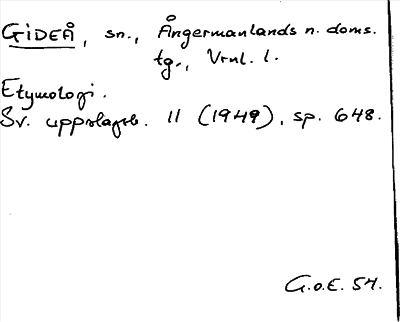 GIDEÅ, sn., Ångermanlands n. doms.
tg., Vrnl. l.
Etymologi.
Sv. uppslagsb. 11 (1949), sp. 648.
G.O.E. 54.